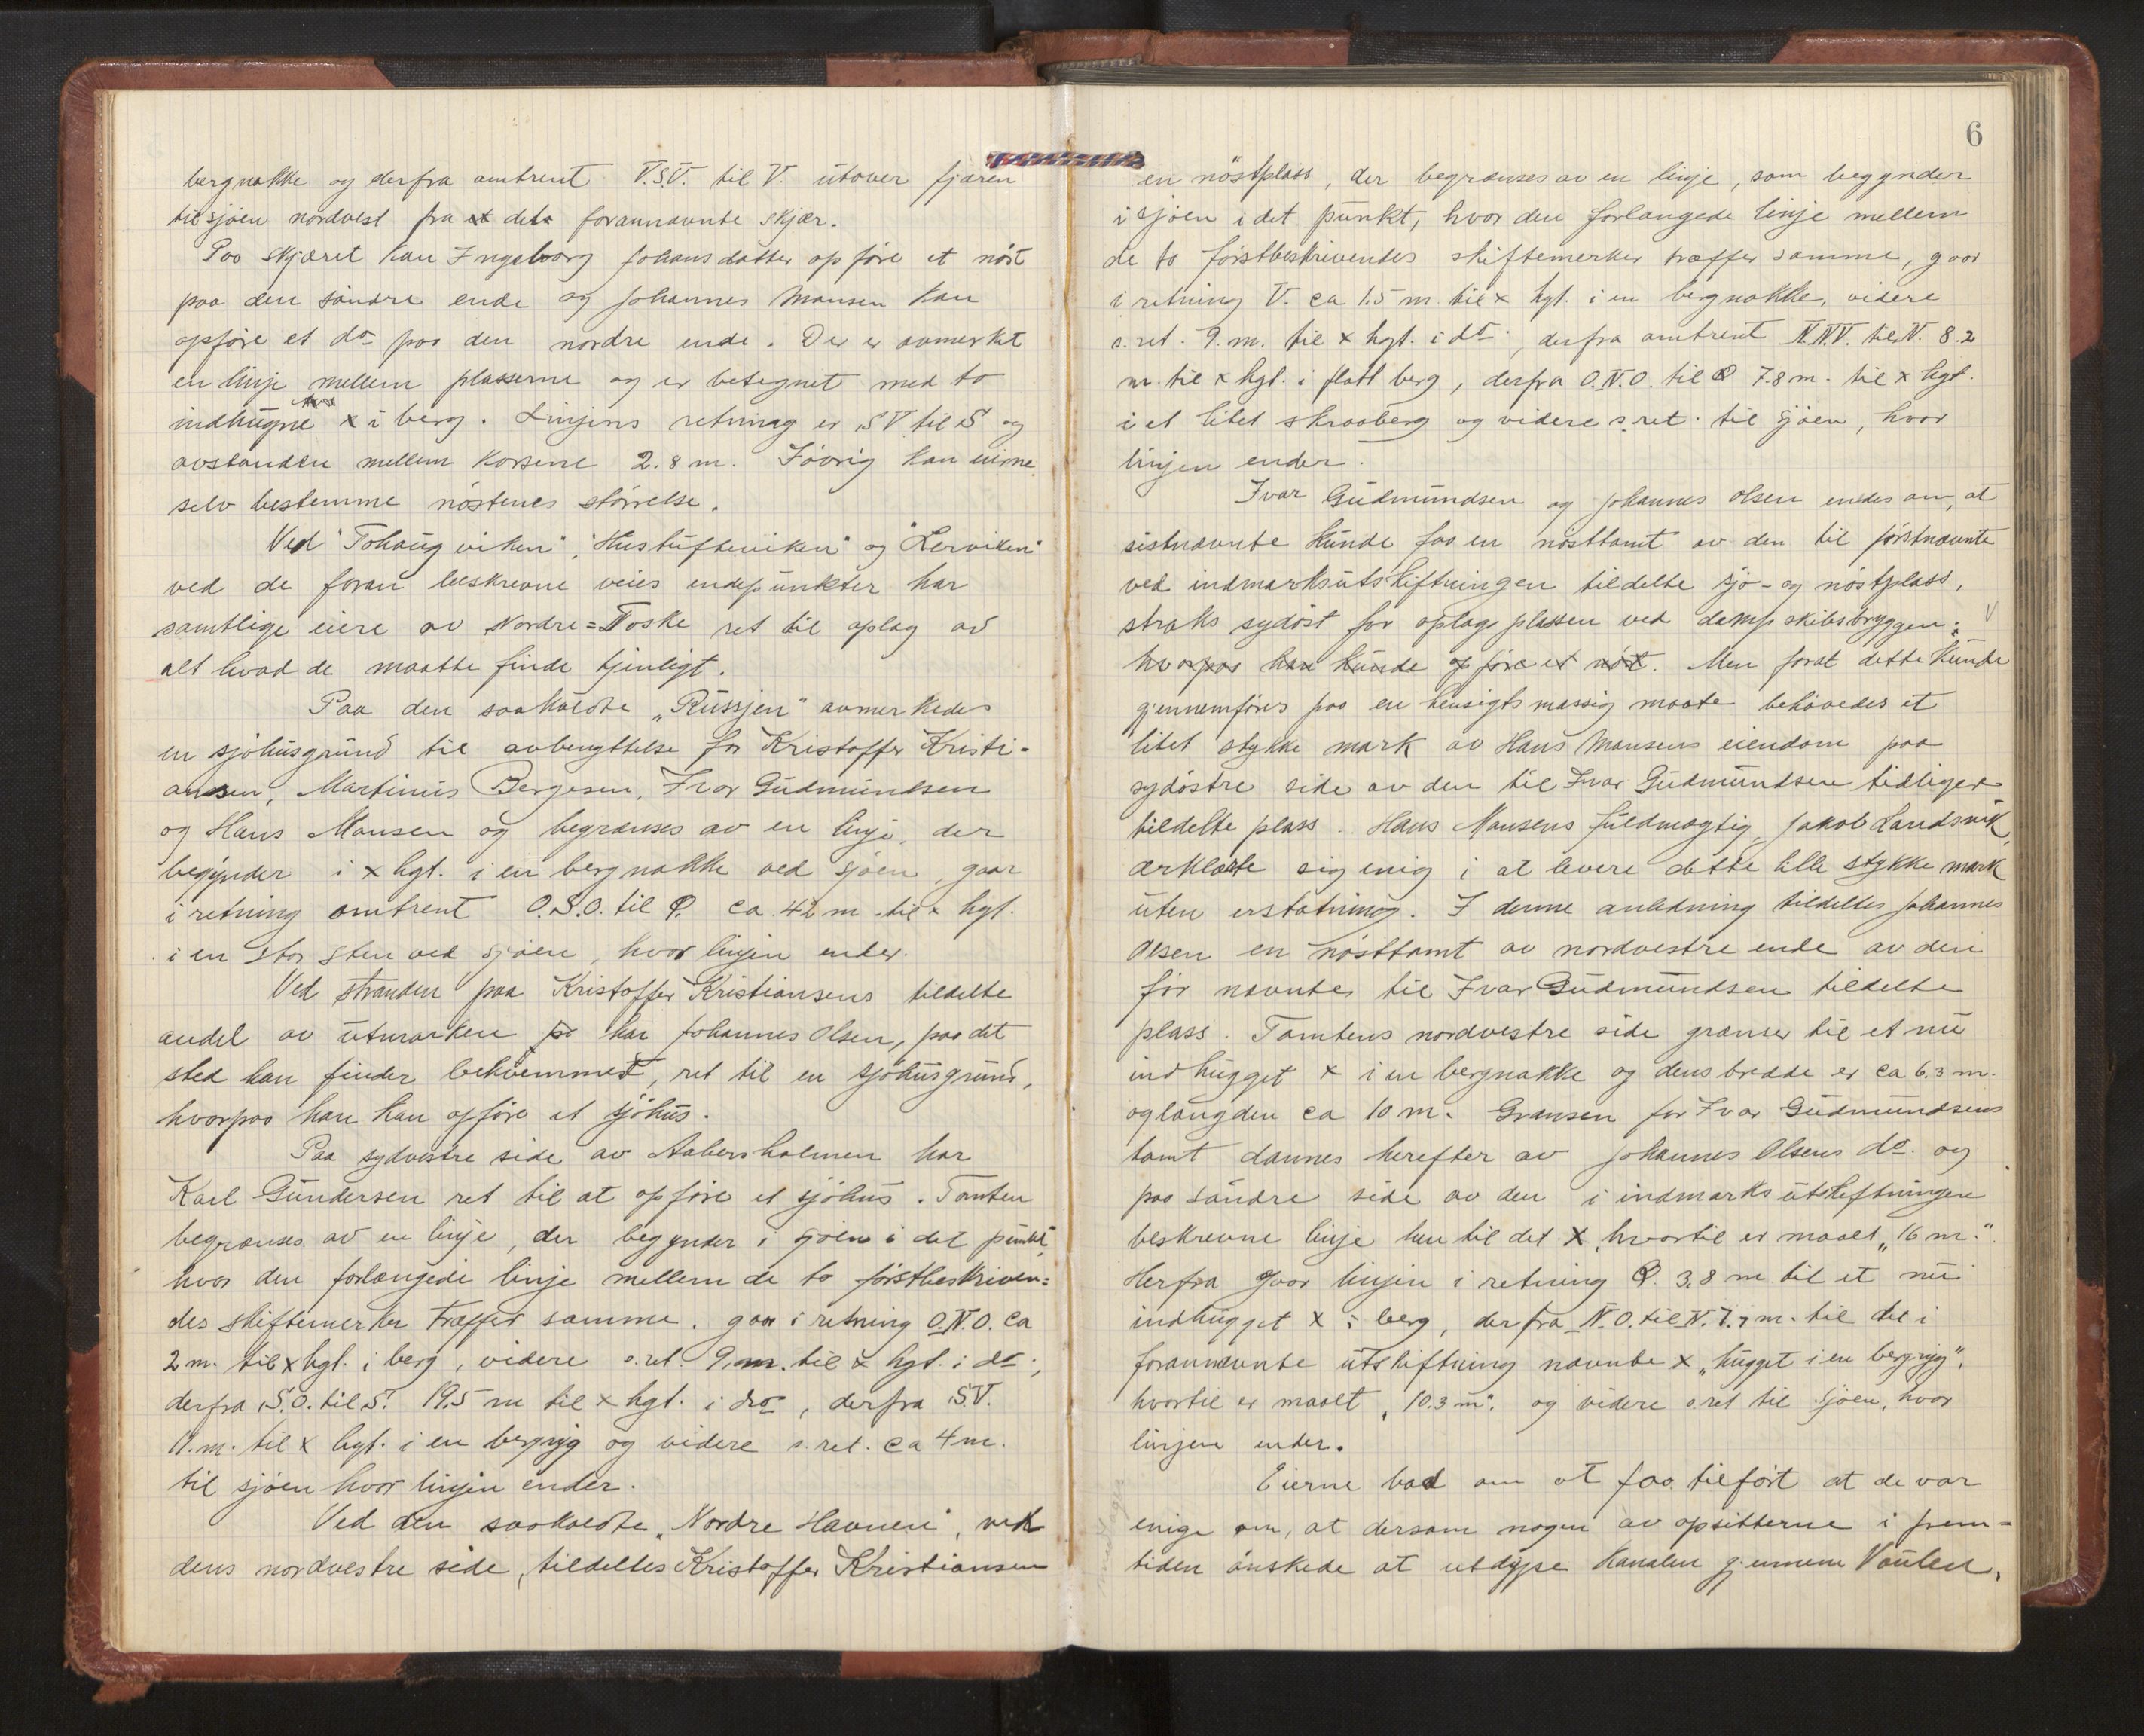 bergnakke og derfra omtrent V.S.V. til V. utover fjæren
til sjøen nordvest fra et det forannævnte skjær.
Paa skjæret kan Ingeborg Johansdatter opføre et nøst
paa den søndre ende og Johannes Monsen kan
opføre et do paa den nordre ende. Der er avmerket
en linje mellem plasserne og er betegnet med to
indhugne x i berg. Linjens retning er SV til S og
avstanden mellem korsene 2.8 m. Iøvrig kan eierne
selv bestemme nøstenes størrelse.
Ved "Tohaugviken", "Hustufteviken" og "Lerviken"
ved de foran beskrevne veies endepunkter har
samtlige eiere av Nordre=Toske ret til oplag av
alt hvad de maatte finde tjenligt.
Paa den saakaldte "Russjen" avmerkedes
en sjøhusgrund til avbenyttelse for Kristoffer Kristi-
ansen, Martinus Bergesen, Ivar Gudmundsen
og Hans Monsen og begrænses av en linje, der
begynder i x hgt. i en bergnakke ved sjøen, gaar
i retning omtrent O.S.O. til O. ca 42 m til x hgt.
i en stor sten ved sjøen, hvor linjen ender.
Ved stranden paa Kristoffer Kristiansens tildelte
andel av utmarken har Johannes Olsen, paa det
sted han finder bekvemmest, ret til en sjøhusgrund,
hvorpaa han kan opføre et sjøhus.
Paa sydvestre side av Aabersholmen har
Karl Gundersen ret til at opføre et sjøhus. Tomten
begrænses av en linje, der begynder i sjøen i det punkt,
hvor den forlængede linje mellem de to førstbeskriven=
des skiftemerker træffer samme, gaar i retning O.N.O. ca
2 m. til x hgt. i berg, videre s. ret. 9 m. til x hgt. i do.,
derfra S.O. til S. 19.5 m til x hgt. i do, derfra S.V.
11. m. til x hgt. i en bergryg og videre s. ret. ca 4 m.
til sjøen hvor linjen ender.
Ved den saakaldte "Nordre Havnen", ved
dens nordvestre side, tildeltes Kristoffer Kristiansen
6
en nøstplass, der begrænses av en linje, som begynder
i sjøen i det punkt, hvor den forlængede linje mellem
de to førstbeskrivendes skiftemerker træffer samme, gaar
i retning V. ca 1.5 m. til x hgt. i en bergnakke, videre
s. ret. 9. m. til x hgt. i do., derfra omtrent N.N.V. til N. 8.2
m. til x hgt. i flatt berg, derfra O.N.O. til O 7.8 m. til x hgt.
i et litet skraaberg og videre s. ret. til sjøen, hvor
linjen ender.
Ivar Gudmundsen og Johannes Olsen enedes om, at
sistnævnte kunde faa en nøsttomt av den til førstnævnte
ved indmarksutskiftningen tildelte sjø- og nøstplass,
straks sydøst for oplagsplassen ved dampskibsbryggen;
hvorpaa han kunde opføre et nøst. Men forat dette kunde
gjennemføres paa en hensigtsmæssig maate behøvedes et
litet stykke mark av Hans Monsens eiendom paa
sydøstre side av den til Ivar Gudmundsen tidligere
tildelte plass. Hans Monsens fuldmægtig, Jakob Landsvik,
ærklærte sig enig i at levere dette lille stykke mark
uten erstatning. I denne anledning tildeltes Johannes
Olsen en nøsttomt av nordvestre ende av den
før nævnte til Ivar Gudmundsen tildelte
plass. Tomtens nordvestre side grænser til et nu
indhugget x i en bergnakke og dens bredde er ca 6.3 m.
og længden ca 10 m. Grænsen for Ivar Gudmundsens
tomt dannes herefter av Johannes Olsens do. og
paa søndre side av den i indmarksutskiftningen
beskrevne linje hen til det x, hvortil er maalt "16 m."
Herfra gaar linjen i retning O. 3,8 m til et nu
indhugget x i berg, derfra N.O. til N. 7.7 m. til det i
forannævnte utskiftning nævnte x "hugget i en bergryg",
hvortil er maalt "10.3 m". og videre s. ret til sjøen, hvor
linjen ender.
Eierne bad om at faa tilført at de var
enige om, at dersom nogen av opsitterne i frem-
tiden ønskede at utdype kanalen gjennem Vaulen,